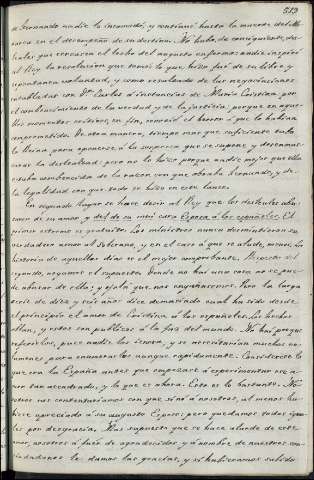 513
á Fernando nadie le incomodó, y continuó hasta la muerte del Mo-
narca en el desempeño de su destino. No hubo de consiguiente, des-
leales que cercaran el lecho del augusto enfermo: nadie inspiró
al Rey la resolucion que tomó: lo que hizo fué de su libre y
espontanea voluntad, y como resultado de las negociaciones
entabladas con Dn. Carlos á instancias de Maria Cristina, por
el convencimiento de la verdad y de la justicia; porque en aque-
llos momentos críticos, en fin, conoció el horror á que le habian
comprometido. De otra manera, tiempo mas que suficiente tuvo
la Reina para oponerse á la sorpresa que se supone y desenmas-
carar la deslealtad: pero no lo hizo porque nadie mejor que ella
estaba convencida de la razon con que obraba Fernando, y de
la legalidad con que todo se hizo en este lance.
En segundo lugar se hace decir al Rey que los desleales abu-
saron de su amor, y del de su muy cara Esposa á los españoles. El
primer extremo es gratuito. Los ministros nunca desmintieron su
verdadero amor al Soberano, y en el caso á que se alude, menos. La
historia de aquellos dias es el mejor comprobante. Respecto del
segundo, negamos el supuesto. Donde no hai una cosa no se pue-
de abusar de ella; y ojala que nos engañasemos. Pero la larga
serie de diez y seis años dice demasiado cual ha sido desde
el principio el amor de Cristina á los españoles. Los hechos
hablan, y estos son publicos á la faz del mundo. No hai porque
referirlos, pues nadie los ignora, y se necesitarian muchos vo-
lúmenes para enumerarlos aunque rapidamente. Considerese lo
que era la España antes que empezase á experimentar ese a-
mor tan acendrado, y lo que es ahora. Esto es lo bastante. No-
sotros nos contentariamos con que sino á nosotros, al menos hu-
biese apreciado á su augusto Esposo: pero quedamos todos igua-
les por desgracia. Mas supuesto que se hace alarde de este
amor, nosotros á fuer de agradecidos, y á nombre de nuestros con-
ciudadanos le damos las gracias, y si hubieramos sabido